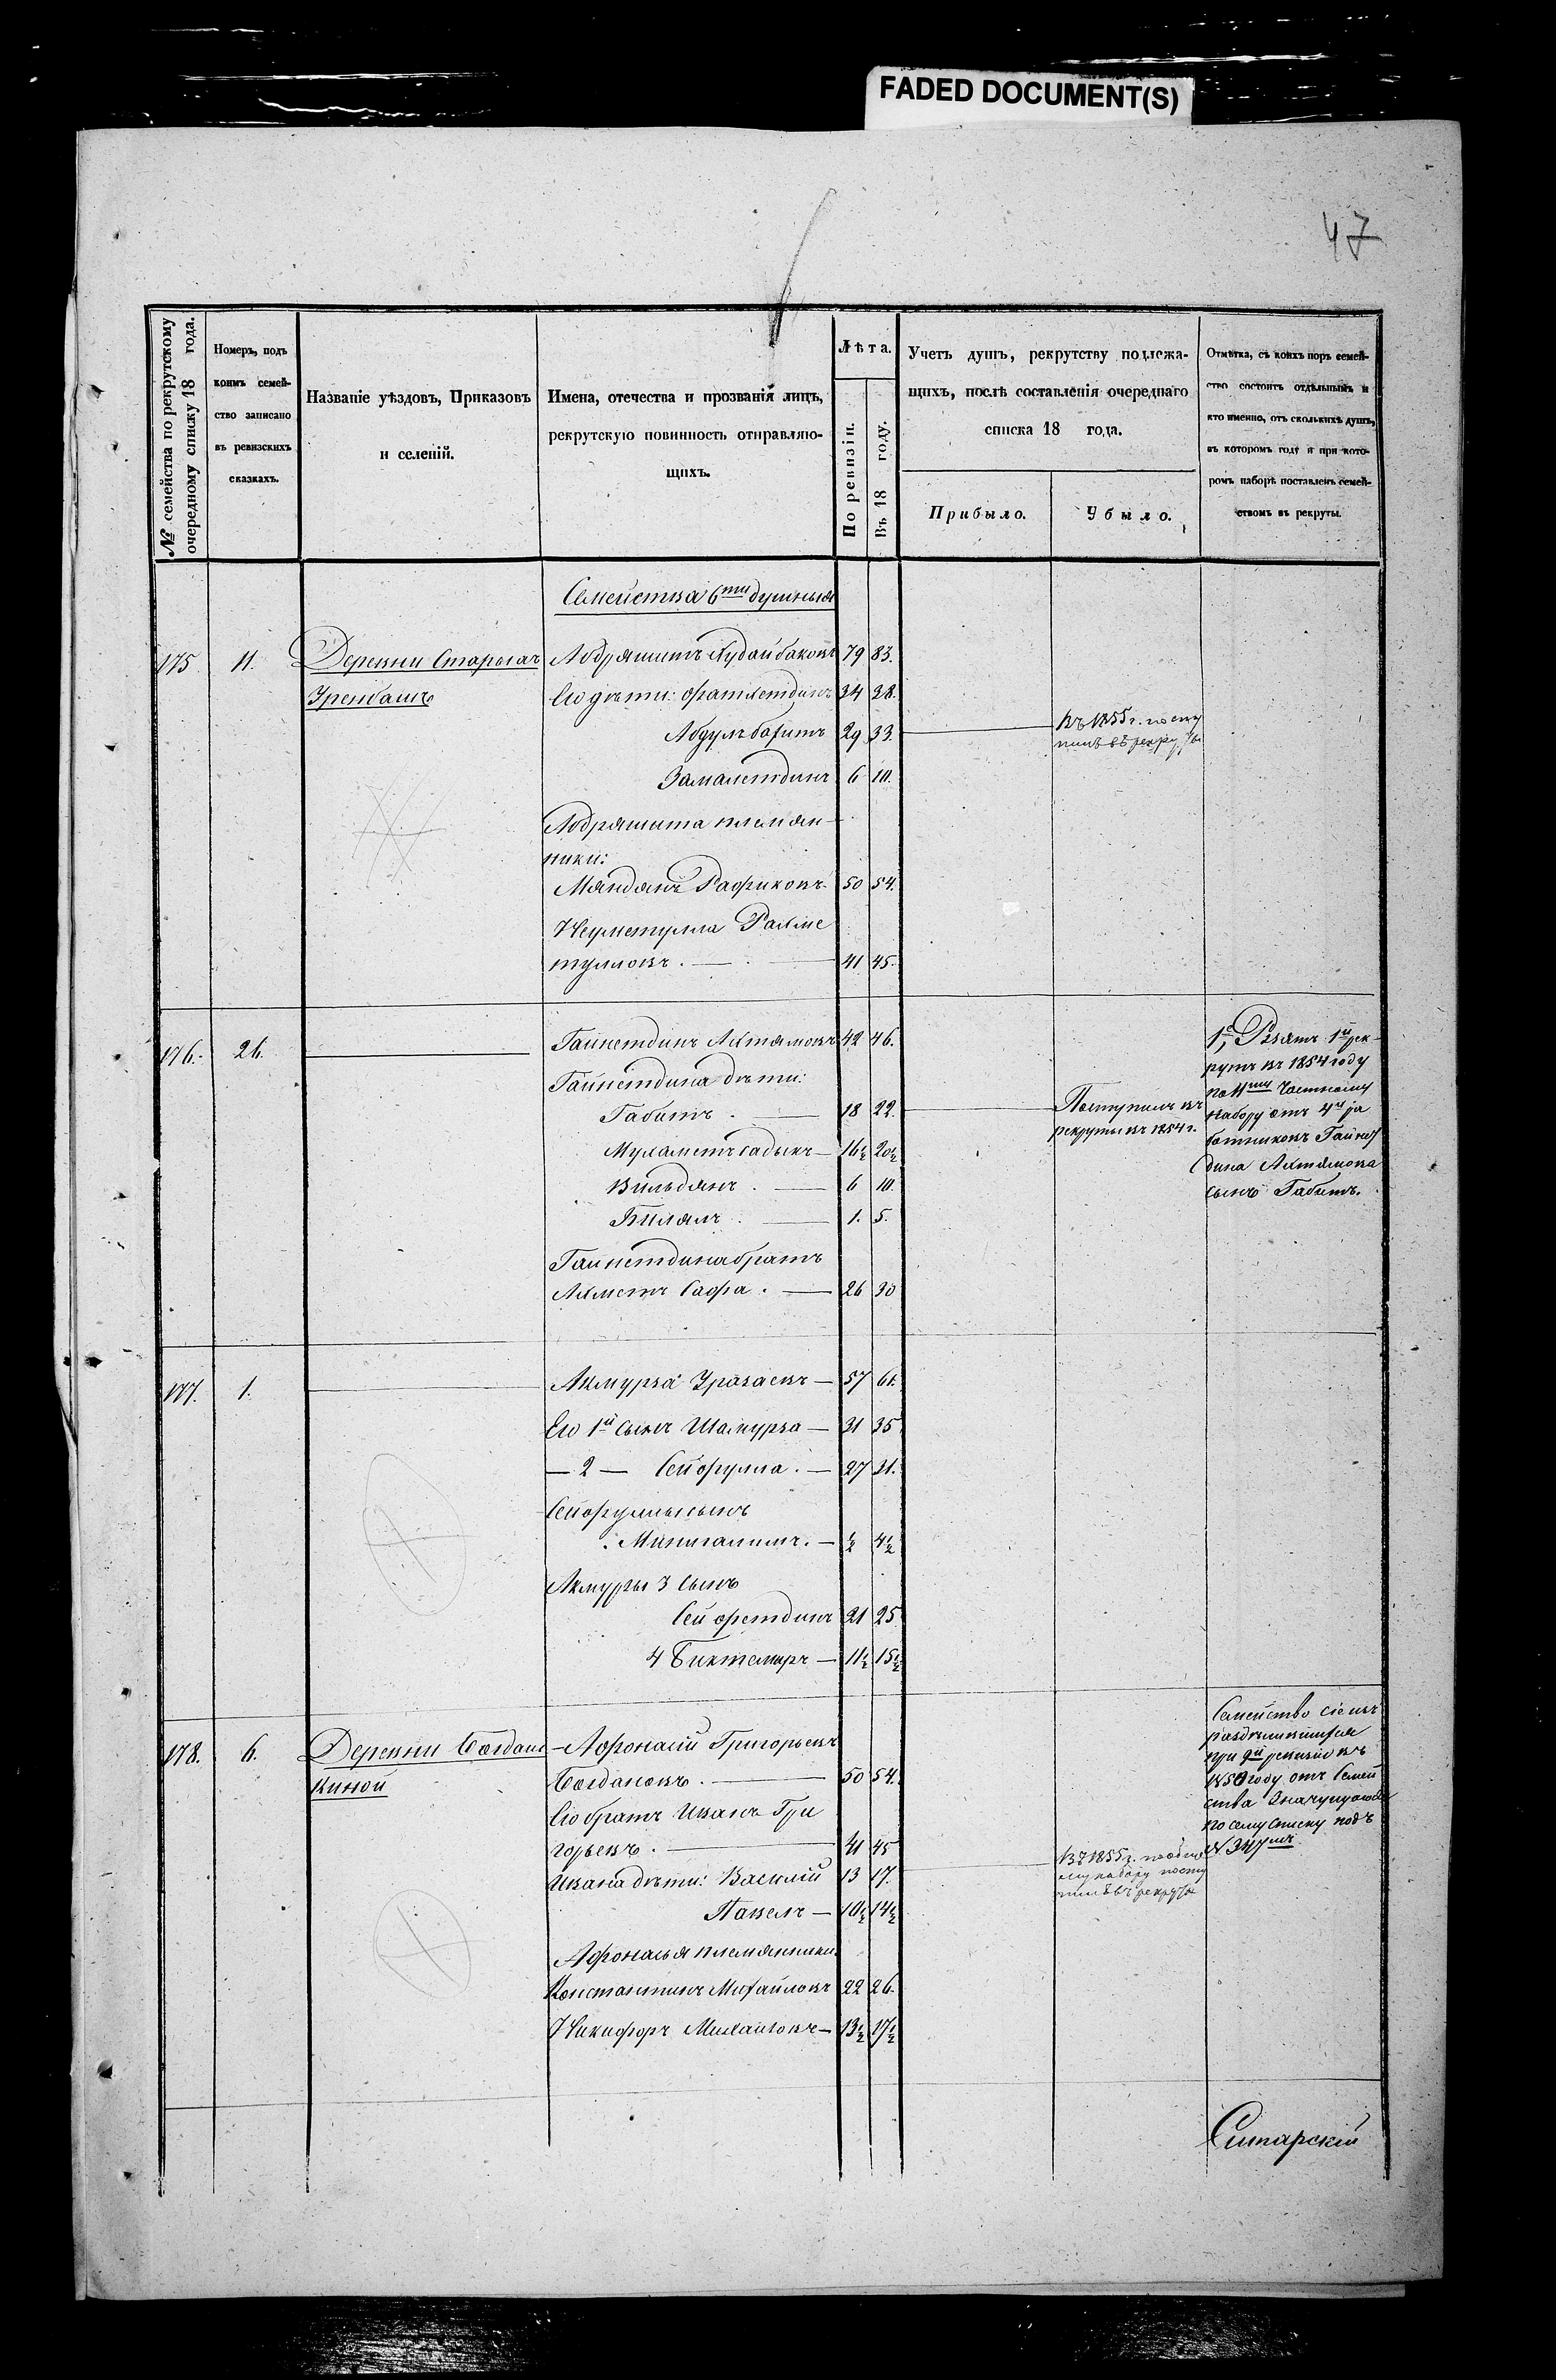 FADED DOCUMENT(S)
47
№ семейства по рекрутскому
очередному списку 18 года.
Номеръ, подъ
коимъ семей-
ство записано
въ ревизскихъ
сказкахъ.
Названіе уѣздовъ, Приказовъ
и селеній.
Имена, отечества и прозванія лицъ,
рекрутскую повинность отправляю-
щихъ.
Лѣта.
По ревизіи.
Въ 18 году.
Учетъ душъ, рекрутству подлежа-
щихъ, послѣ составленія очереднаго
списка 18 года.
Прибыло.
Убыло.
Отмѣтка, съ коихъ поръ семей-
ство состоитъ отдѣльнымъ и
кто именно, отъ сколькихъ душъ,
въ которомъ году и при кото-
ромъ наборѣ поставленъ семей-
ствомъ въ рекруты.
Семейства 6ти душныя
175. 11. Деревни Стараго Абдряшитъ Худайбаковъ 79 83.
Зренбашъ Его дѣти: Фатхетдинъ 34 38.
Абдулъ 29 33. Въ 1855 г. посту
пилъ въ рекруты
Замалетдинъ 6 10.
Абдряшита племян-
ники:
Мяндянъ Рафиковъ 50 54.
Неуметулла Рахме
тулловъ. 41 45.
176. 26. Гайнетдинъ Ахтямовъ 42 46.
Гайнетдина дѣти:
Габитъ. 18 22. Поступилъ въ
рекруты въ 1854 г.
Мухаметъ садыкъ 16½ 20½
Вильдянъ. 6 10.
Билялъ. 1. 5.
Гайнетдина братъ
Ахметъ Сафа. 26 30
1, Взятъ 1й рек-
рутъ въ 1854 году
по 11му частному
набору отъ 4х ра
ботниковъ Гайнет
дина Ахтямова
сынъ Габитъ.
177. 1. Акмурза Уразаевъ 57 61.
Его 1й сынъ Шамурза 31 35
— 2 — Сейфулла. 27 31.
Сейфуллы сынъ
Минигалимъ. ½ 4½
Акмурзы 3 сынъ
Сейфетдинъ 21 25
4 Биктемиръ 11½ 15½
178. 6. Деревни Богдан Афонасій Григорьевъ
киной Богдановъ. 50 54.
Его братъ Иванъ Гри
горьевъ. 41 45
Ивана дѣти: Василій 13 17.
Павелъ 10½ 14½
Афонасья племянники
Константинъ Михайловъ 22 26.
Никифоръ Михайловъ 13½ 17½
Въ 1855 г. по
му набору посту
пилъ въ рекруты
Семейство сіе изъ
раздѣлившихся
при 9й ревизіи въ
1850 году отъ семей
ства значущагося
по сему списку подъ
№ 347мъ